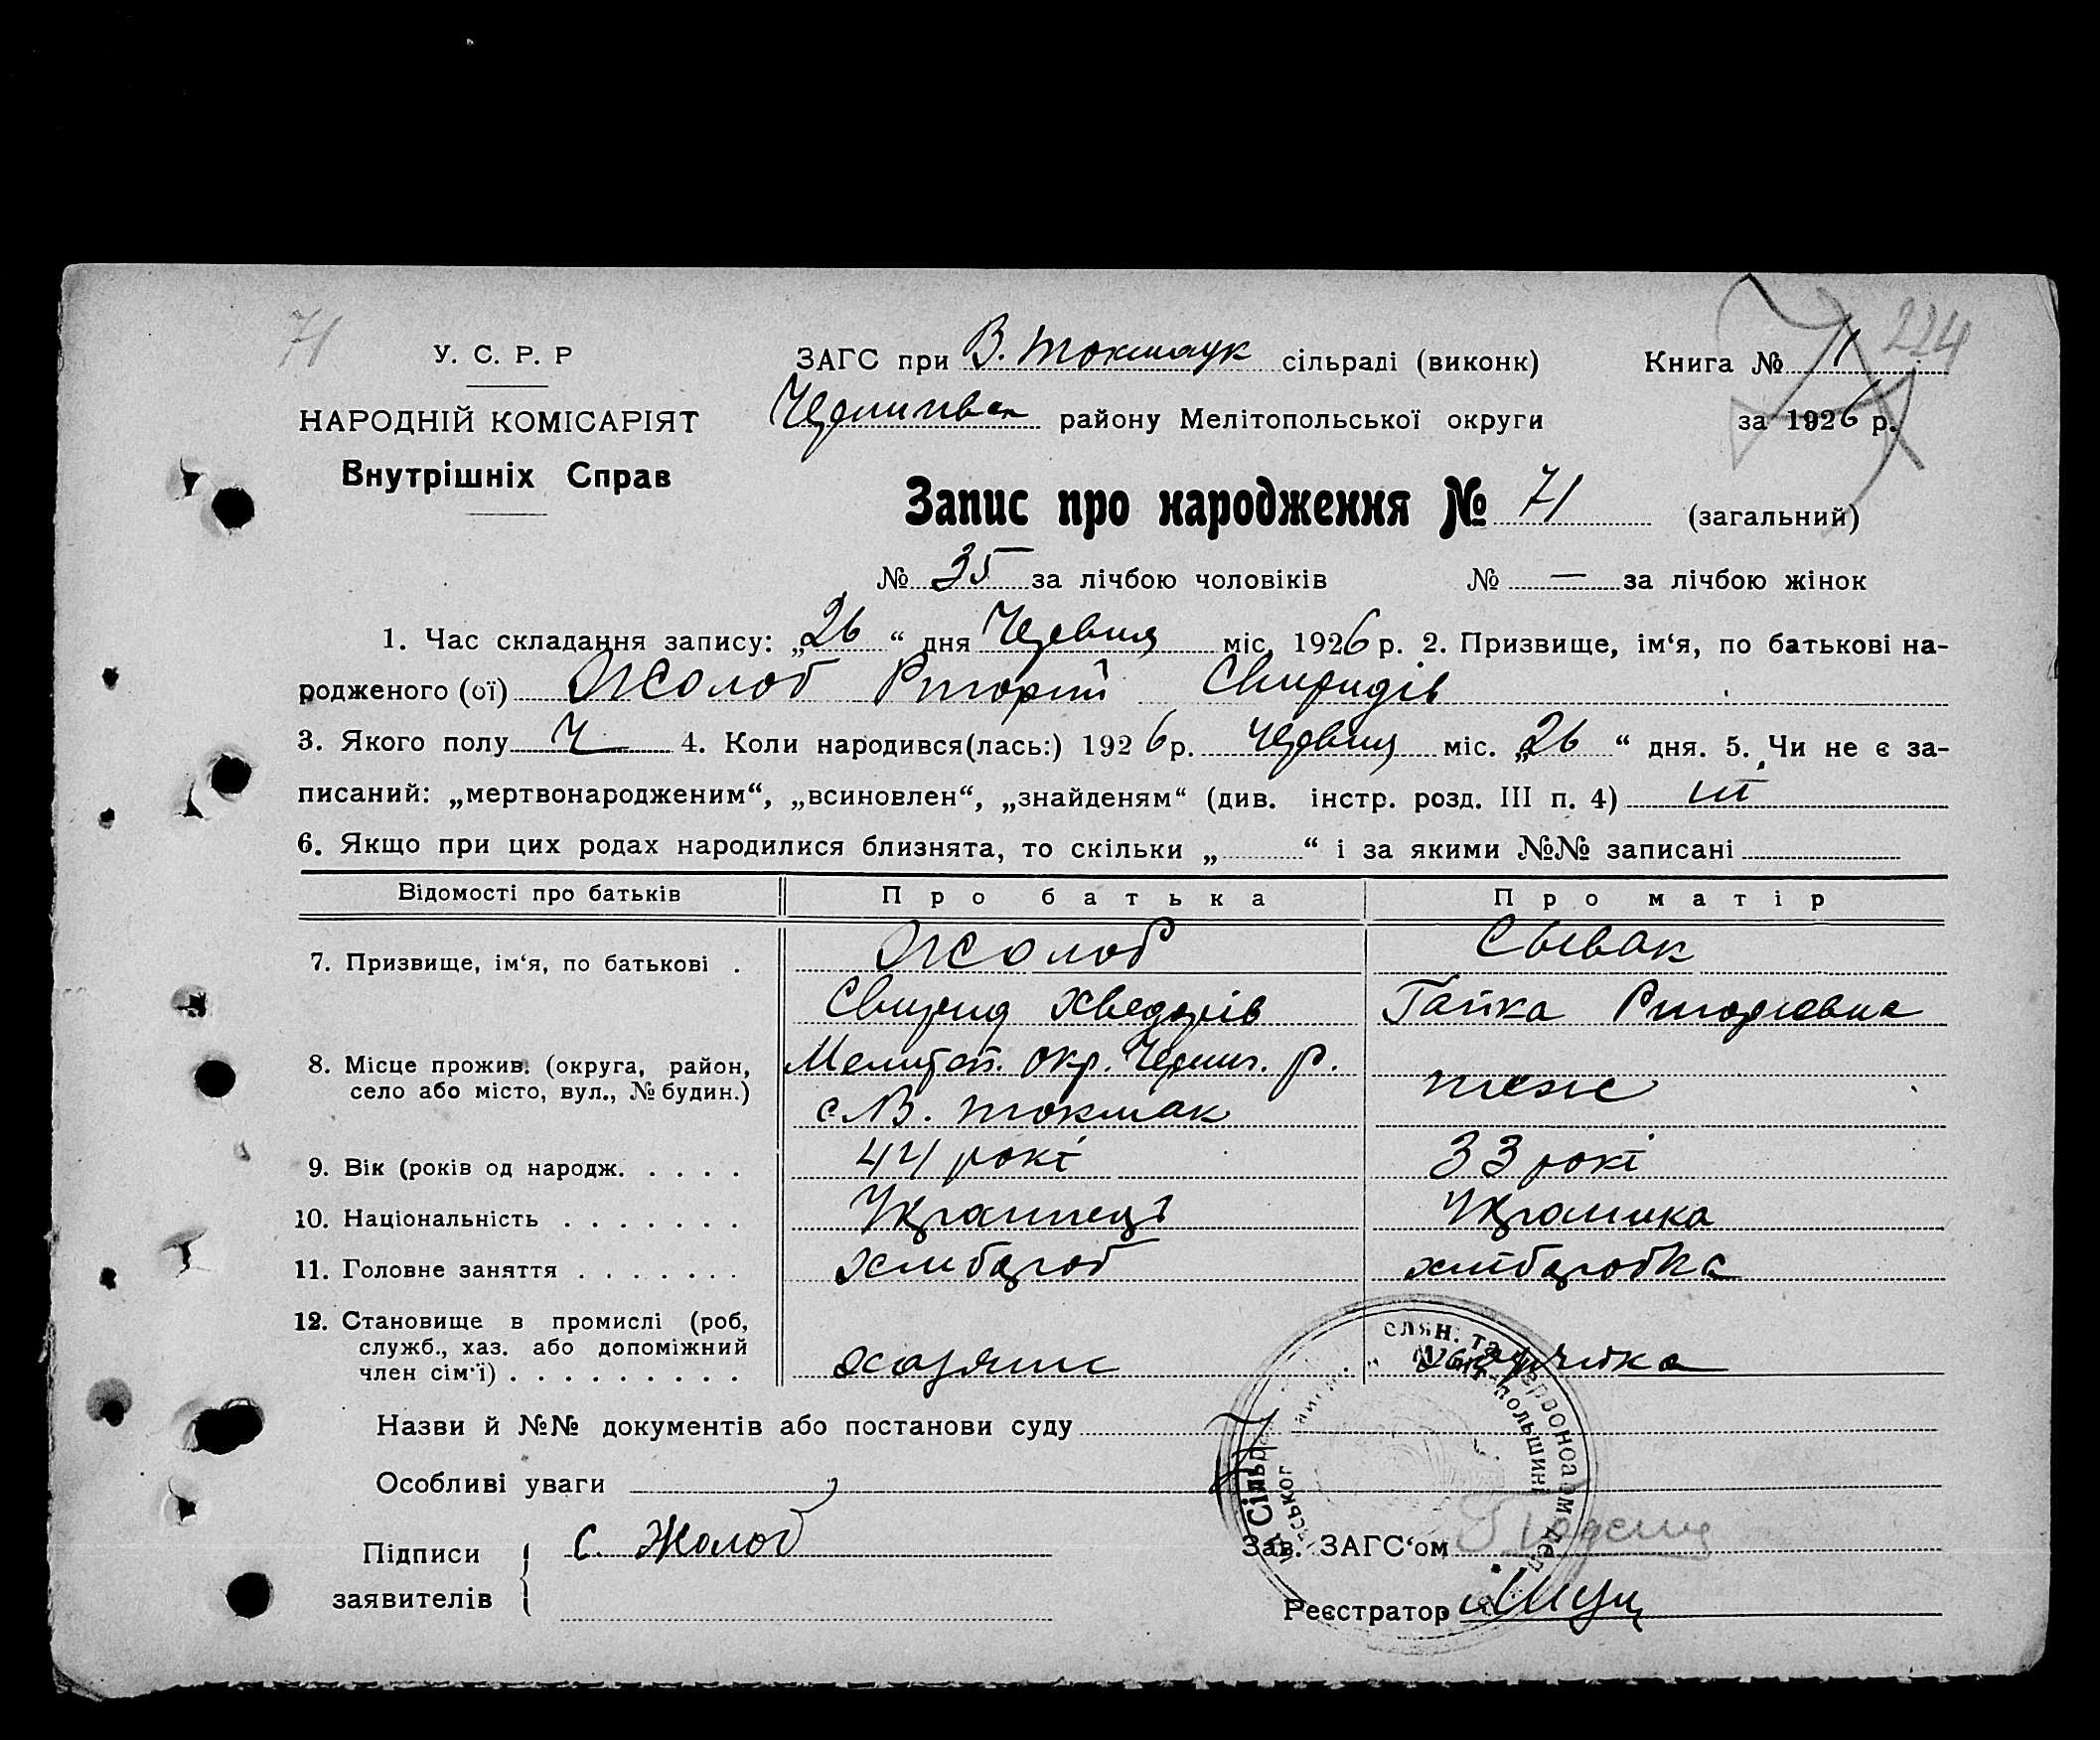 71
224
У. С. Р. Р
НАРОДНІЙ КОМІСАРІЯТ
Внутрішніх Справ
ЗАГС при В. Токмаук сільраді (виконк)
району Мелітопольської округи
Книга №
за 1926 р.
Запис про народження № 71 (загальний)
№ 35 за лічбою чоловіків № — за лічбою жінок
1. Час складання запису: „26“ дня Червця міс. 1926 р. 2. Призвище, ім‘я, по батькові на-
родженого (ої) Жолоб Григорій Свиридів
3. Якого полу Ч 4. Коли народився(лась:) 1926 р. Червця міс. „26“ дня. 5. Чи не є за-
писаний: „мертвонародженим“, „всиновлен“, „знайденям“ (див. інстр. розд. III п. 4)
6. Якщо при цих родах народилися близнята, то скільки „ “ і за якими №№ записані
Відомості про батьків Про батька Про матір
7. Призвище, ім‘я, по батькові . Жолоб Сывак
Свирид Хведорів Гапка Григоровна
8. Місце прожив. (округа, район, Мелитоп. окр. Черниг. р.
село або місто, вул., № будин.) с. В. Токмак тоже
9. Вік (років од народж. . . . . 44 рокі 33 рокі
10. Національність . . . . . . . Українець Украинка
11. Головне заняття . . . . . . . хлибароб хлибаробка
12. Становище в промислі (роб,
служб., хаз. або допоміжний
член сім‘ї) . . . . . . . . . хазяин
Назви й №№ документів або постанови суду
Особливі уваги
Підписи
заявителів
С. Жолоб
Зав. ЗАГС‘ом
Реєстратор